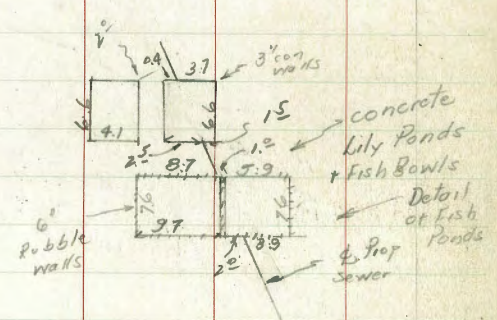 0.4
3.7
3" con
walls
6.6
4.1
6.6
1 5
2 5
1 0
concrete
Lily Ponds
+ Fish Bowls
8.7
5.9
Detail
of Fish
Ponds
6"
Rubble
walls
9.7
8.9
2 0
℄ Prop
Sewer